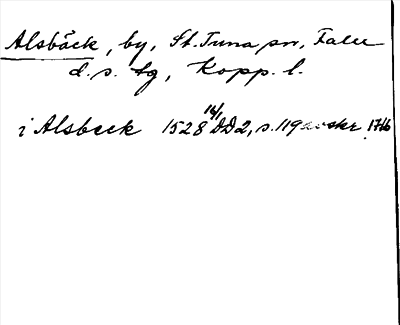 Alsbäck, by, St. Tuna sn, Falu
d. s. tg, Kopp. l.
i Alsbeck 1528 16/1 DD2, s. 119 avskr. 1766